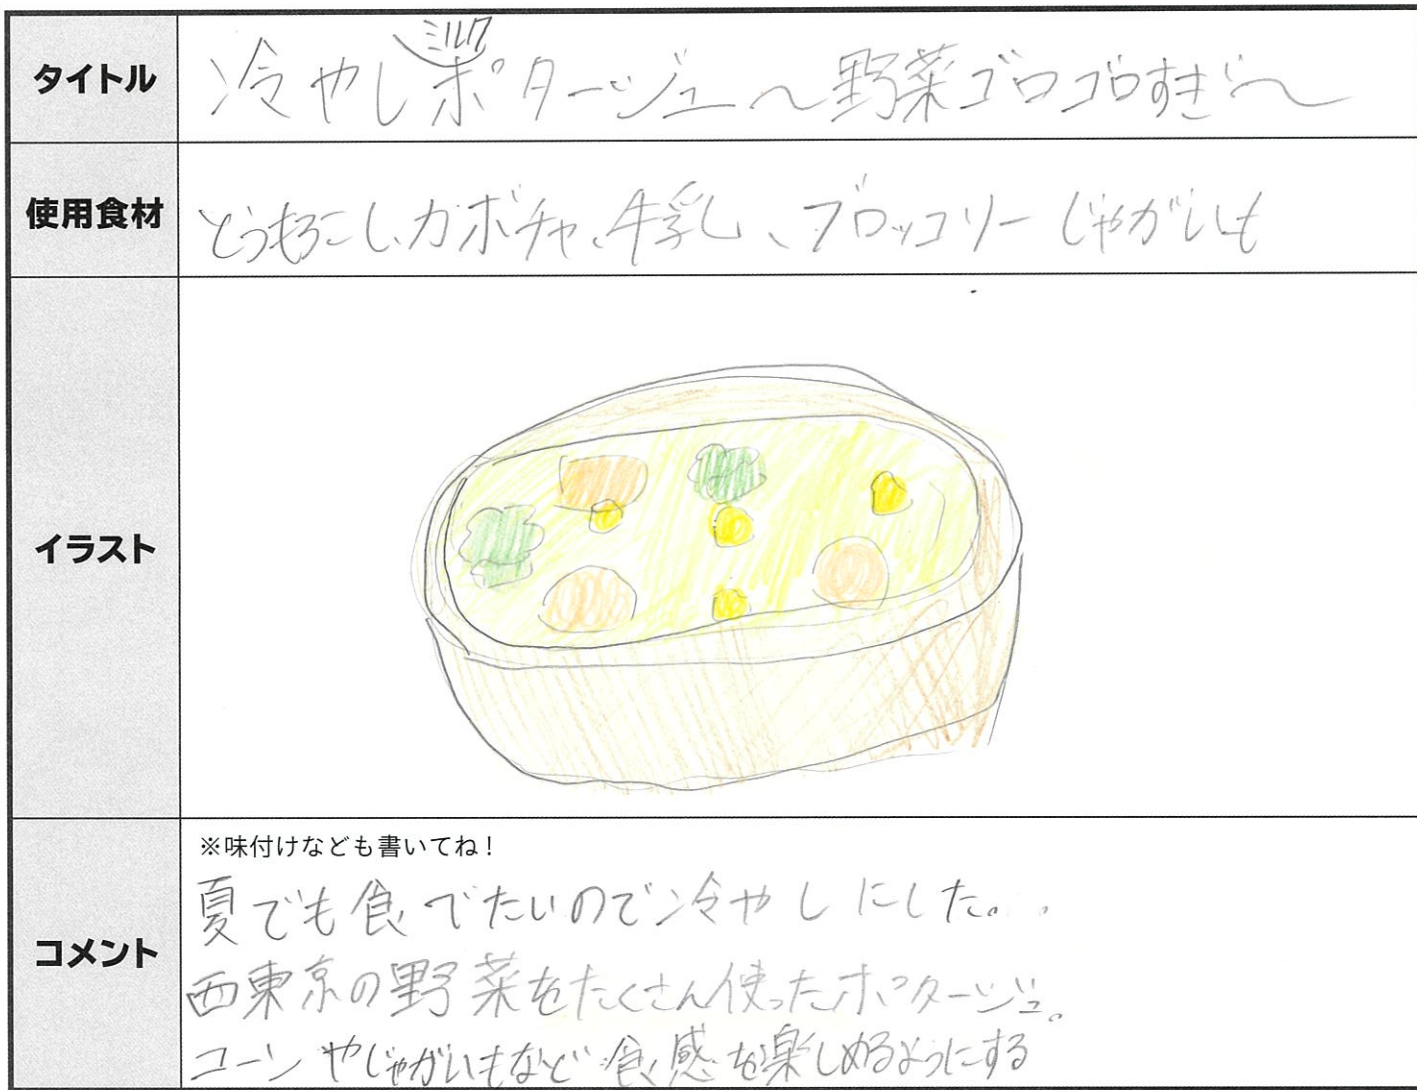 タイトル
冷やしミルクポタージュ〜野菜ゴロゴロすぎ〜
使用食材
とうもろこし、カボチャ、牛乳、ブロッコリー じゃがいも
イラスト
コメント
※味付けなども書いてね！
夏でも食べたいので冷やしにした。
西東京の野菜をたくさん使ったポタージュ。
コーンやじゃがいもなど食感を楽しめるようにする